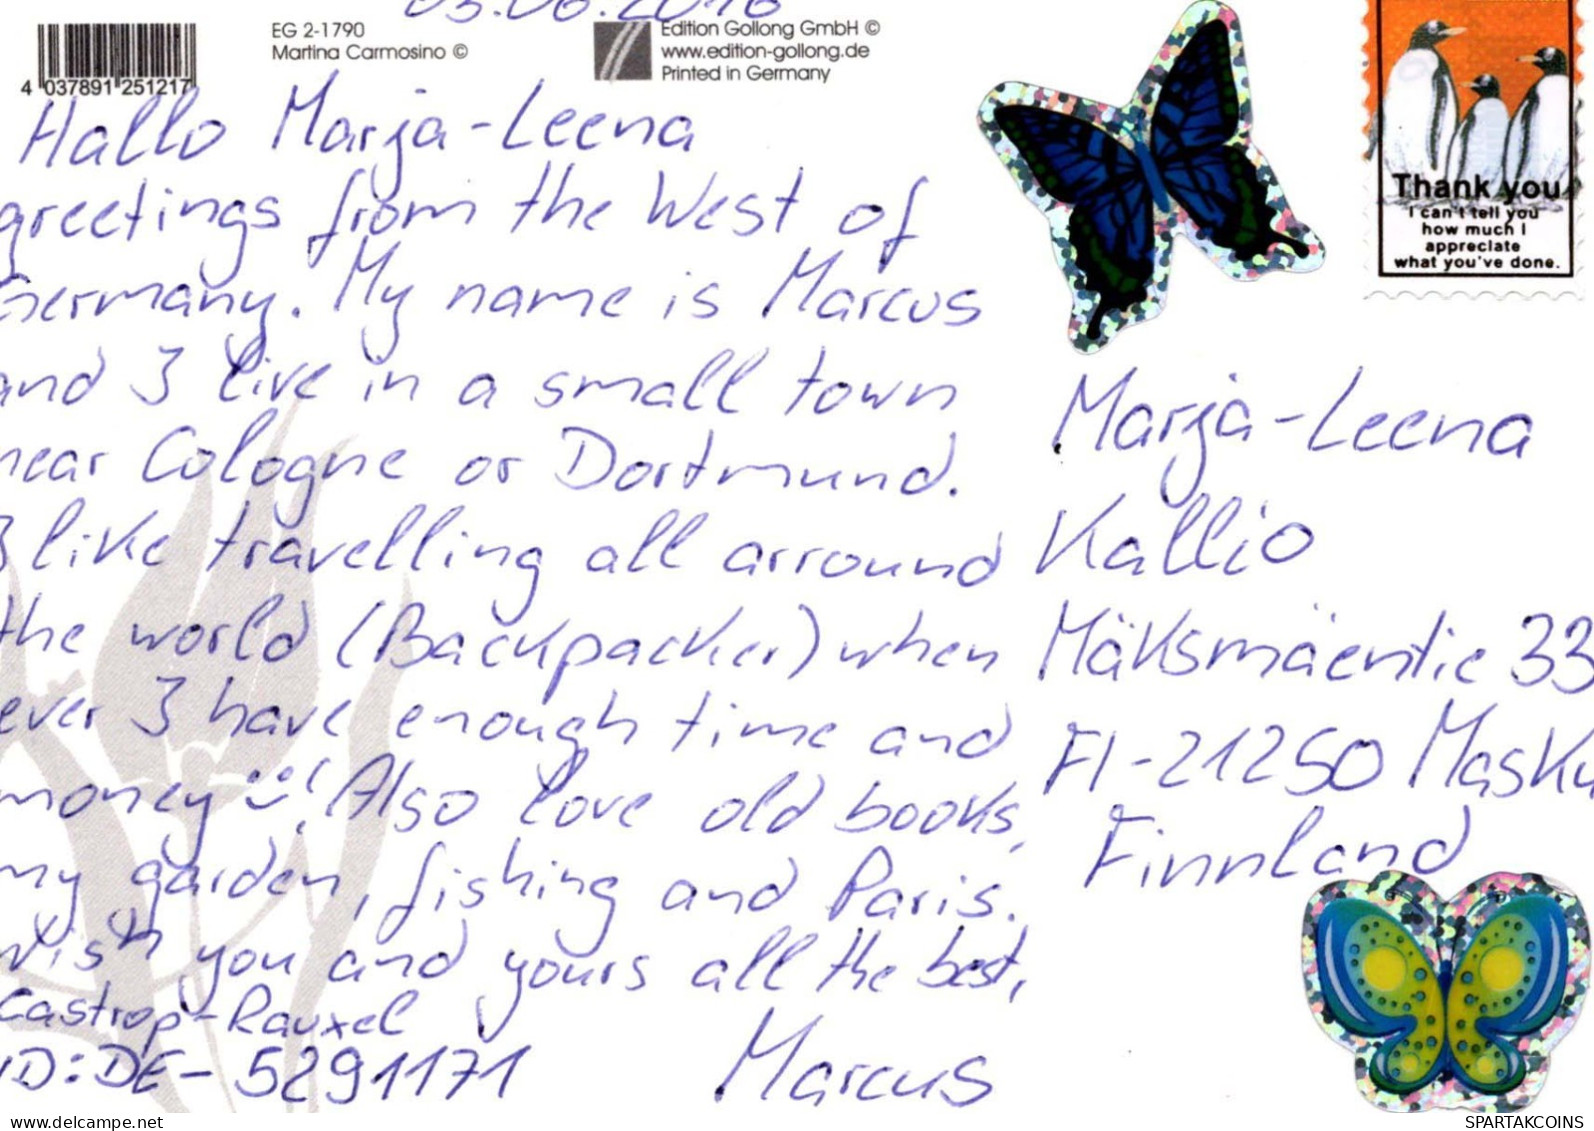 03.06.2016
EG 2-1790
Martina Carmosino ©
Edition Gollong GmbH ©
www.edition-gollong.de
Printed in Germany
4 037891 251217
Hallo Marja-Leena
greetings from the West of
Germany. My name is Marcus
and I live in a small town
near Cologne or Dortmund.
I like travelling all arround
the world (Backpacker) when
ever I have enough time and
money :-)! Also love old books,
my garden, fishing and Paris.
Wish you and yours all the best,
Castrop-Rauxel
ID: DE-5291171
Marcus
Thank you
I can't tell you
how much I
appreciate
what you've done.
Marja-Leena
Kallio
Mäksmäentie 33
FI-21250 Masku
Finnland
www.delcampe.net
SPARTAKCOINS